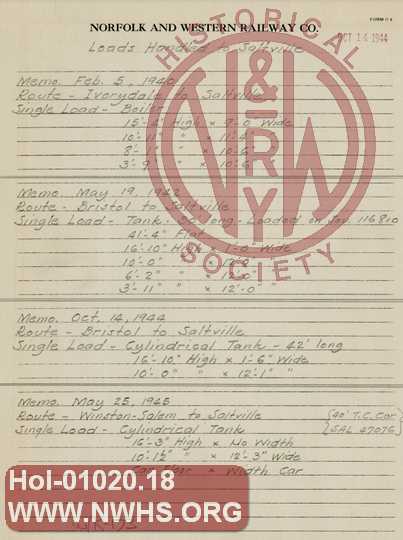 FORM G 4
NORFOLK AND WESTERN RAILWAY CO.
OCT 14 1944
Loads Handled to Saltville
HISTORICAL
N&W RY
SOCIETY
Memo. Feb. 5, 1940
Route - Ivorydale to Saltville
Single Load - Boiler
15'-4" High × 9'-0" Wide
10'-11" " × 11'-4"
8'- " × 10'-6"
3'-9" " × 10'-6"
Memo. May 19, 1942
Route - Bristol to Saltville
Single Load - Tank - long - Loaded on Sou. 116810
41'-4" Flat
16'-10" High × 1'-0" Wide
10'-0" "
6'-2" " 12'-0"
3'-11" " × 12'-0" "
Memo. Oct. 14, 1944
Route - Bristol to Saltville
Single Load - Cylindrical Tank - 42' long
16'-10" High × 1'-6" Wide
10'-0" " × 12'-1" "
Memo. May 25, 1945
Route - Winston-Salem to Saltville {40' T.C. Car
Single Load - Cylindrical Tank {SAL 47076
16'-3" High × No Width
10'-1½" " × 12'-3" Wide
Car Floor × Width Car
Hol-01020.18
www.NWHS.ORG